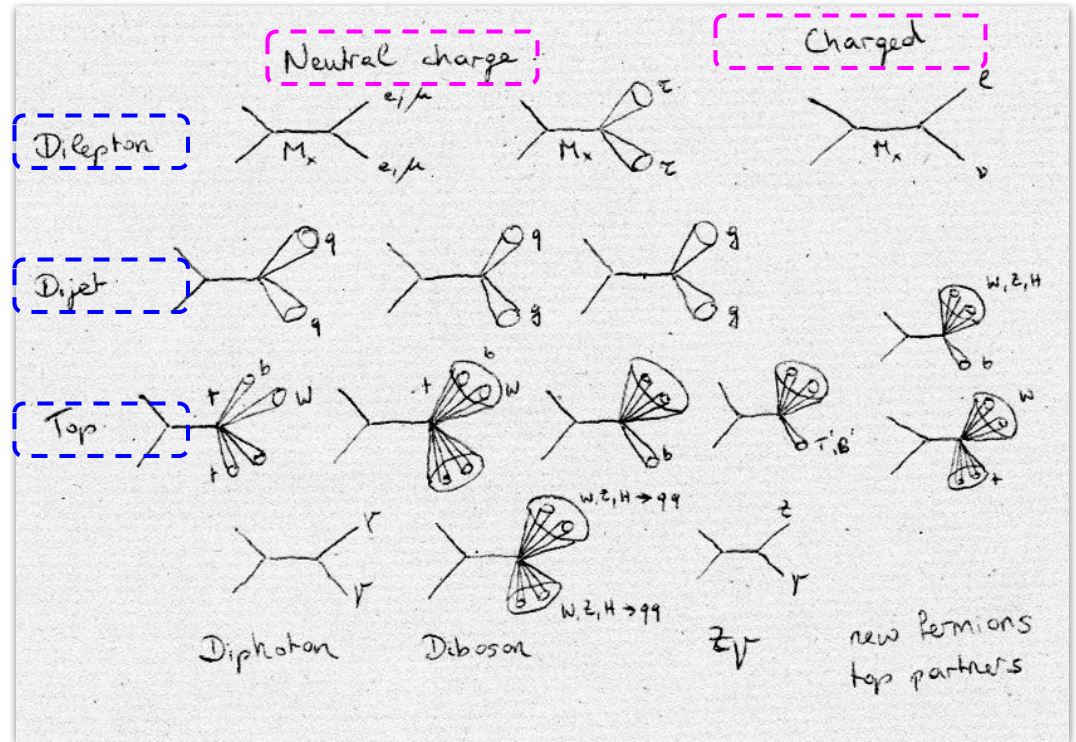 Neutral charge
Charged
Dilepton
e, μ
e, μ
Mₓ
τ
τ
Mₓ
e
ν
Mₓ
Dijet
q
q
q
g
g
g
W, Z, H
b
Top
t
b
W
t
t
b
W
b
T', B'
W
t
γ
γ
W, Z, H → qq
W, Z, H → qq
Z
γ
Diphoton
Diboson
Zγ
new fermions
top partners